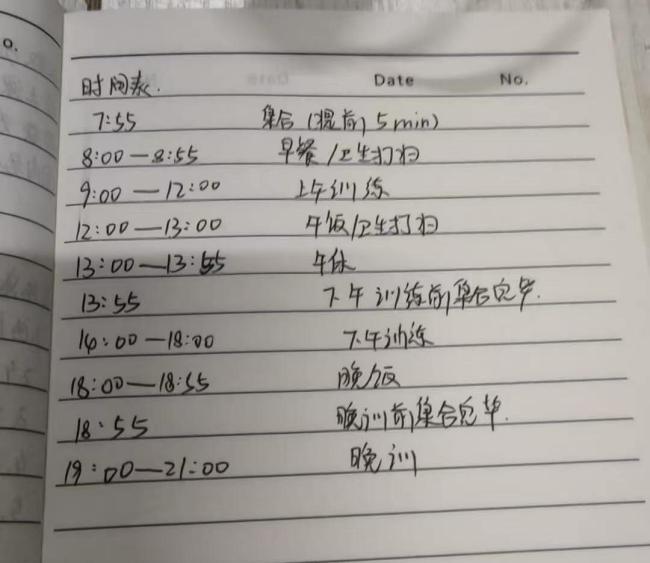 o.
Date No.
时间表.
7:55 集合(提前5min)
8:00—8:55 早餐/卫生打扫
9:00—12:00 上午训练
12:00—13:00 午饭/卫生打扫
13:00—13:55 午休
13:55 下午训练前集合完毕.
14:00—18:00 下午训练
18:00—18:55 晚饭
18:55 晚训前集合完毕.
19:00—21:00 晚训